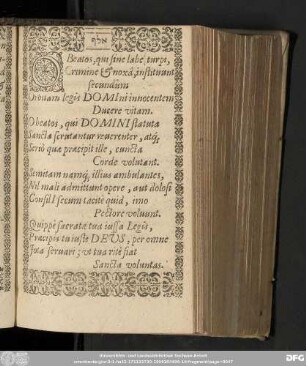 אלף
O Beatos, qui sine labe, turpi,
Crimine & noxâ, instituunt
secundum
Orbitam legis DOMIni innocentem
Ducere vitam.
O beatos, qui DOMINI statuta
Sancta scrutantur reverenter, atq;
Seriò quæ præcipit ille, cuncta
Corde volutant.
Semitam namq; illius ambulantes,
Nil mali admittunt opere, aut dolosi
Consilî secum tacitè quid, imo
Pectore volvunt.
Quippè sacratæ tua jussa Legis,
Præcipis tu justè DEUS, per omne
Jota servari; ut tua ritè fiat
Sancta voluntas.